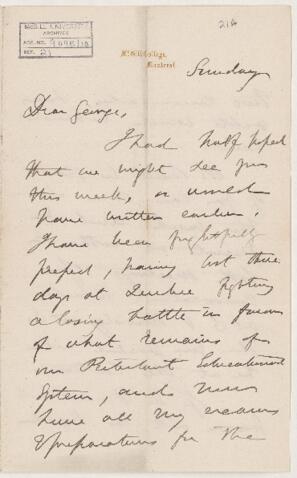 McGILL UNIVERSITY
ARCHIVES
ACC. NO.
REF. 21
21a
McGill College,
Montreal.
Sunday
Dear George,
I had half hoped
that we might see you
this week, or would
have written earlier.
I have been frightfully
pressed, having lost three
days at Quebec fighting
a losing battle in favour
of what remains of
our Protestant Educational
System, and now
have all my exams
& preparations for the